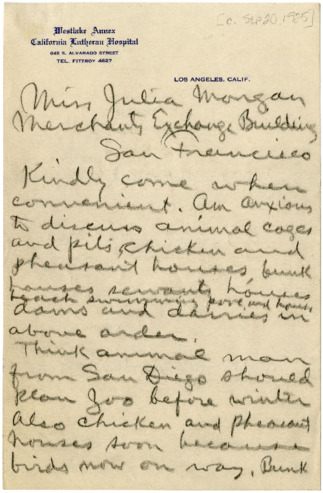 [c. Sep 20 1925]
Westlake Annex
California Lutheran Hospital
645 S. ALVARADO STREET
TEL. FITZROY 4627
LOS ANGELES, CALIF.
Miss Julia Morgan
Merchants Exchange Building
San Francisco
Kindly come when
convenient. Am anxious
to discuss animal cages
and pits, chicken and
pheasant houses bunk
houses servants houses
beach swimming pool and house
dams and dairies in
above order.
Think animal man
from San Diego should
plan Zoo before winter
Also chicken and pheasant
houses soon because
birds now on way. Bunk